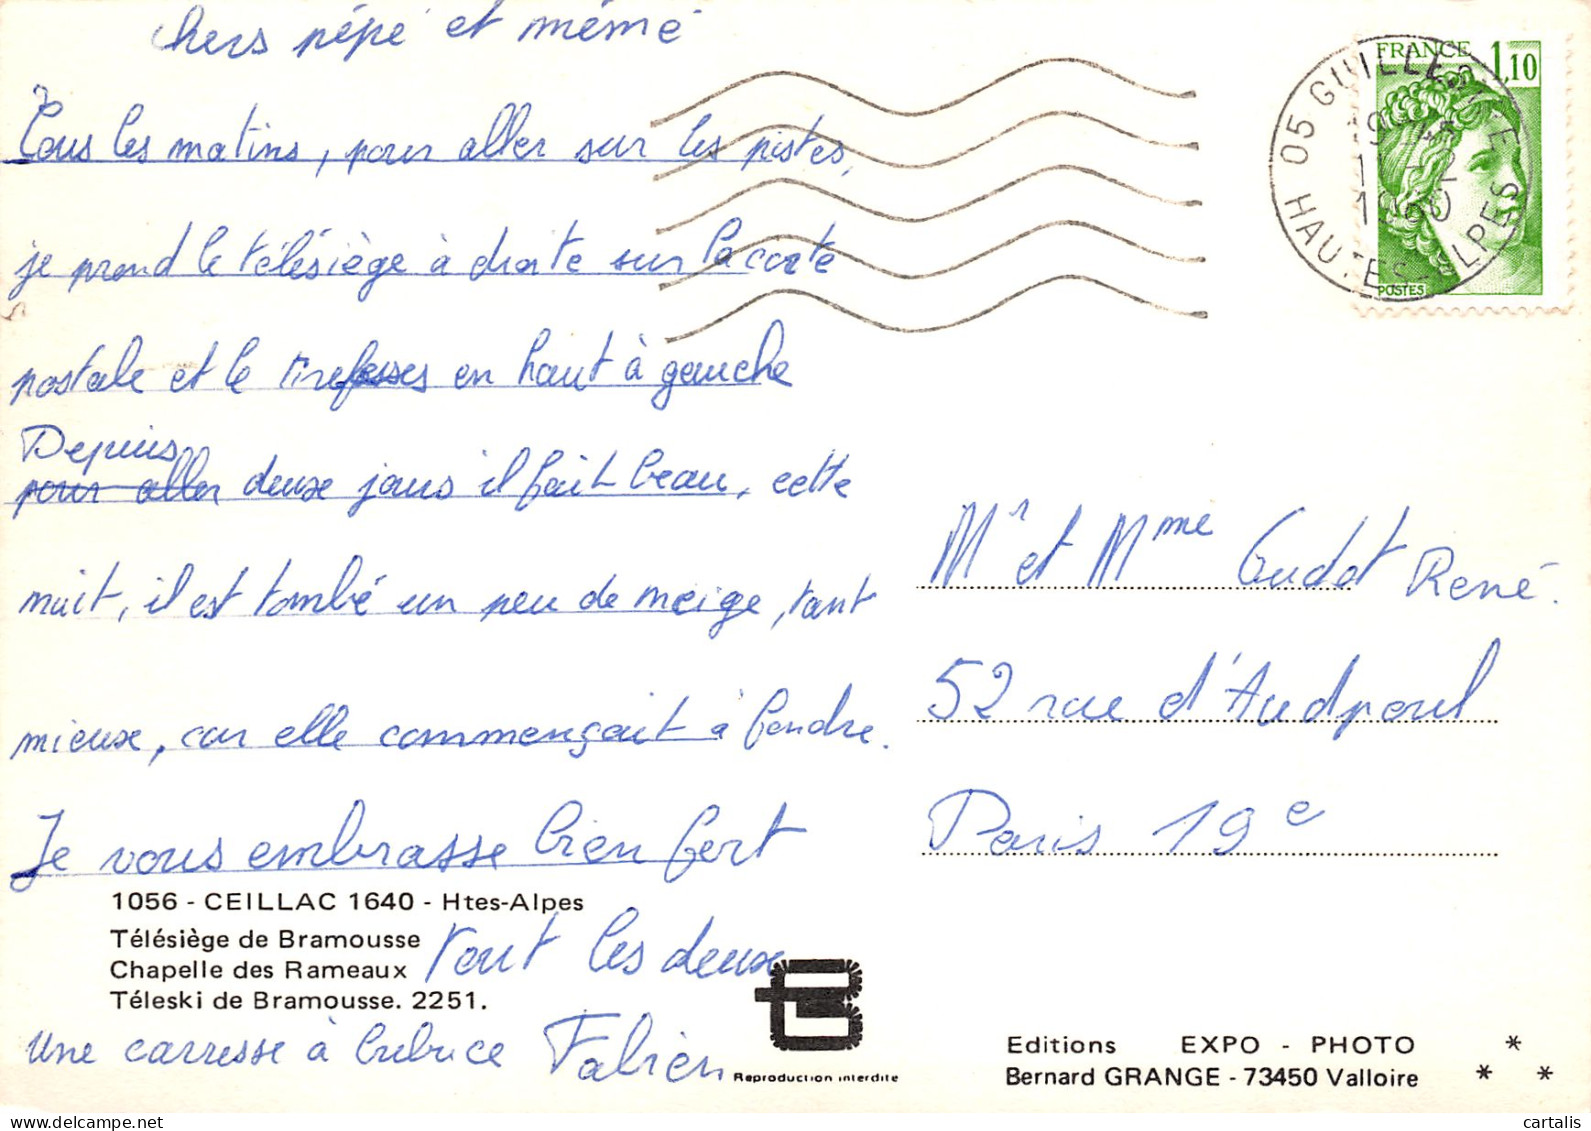 chers pépé et mémé
Tous les matins, pour aller sur les pistes,
je prend le télésiège à droite sur la carte
postale et le tirefesses en haut à gauche
Depuis
pour aller deux jours il fait beau, cette
nuit, il est tombé un peu de neige, tant
mieux, car elle commençait à fondre.
Je vous embrasse bien fort
tout les deux
une carresse à
Fabien
1056 - CEILLAC 1640 - Htes-Alpes
Télésiège de Bramousse
Chapelle des Rameaux
Téleski de Bramousse. 2251.
Reproduction interdite
FRANCE 1,10
POSTES
05 GUILLESTRE
HAUTES-ALPES
Mr et Mme Gudot René.
52 rue d'Audpoul
Paris 19e
Editions EXPO - PHOTO *
Bernard GRANGE - 73450 Valloire * *
cartalis